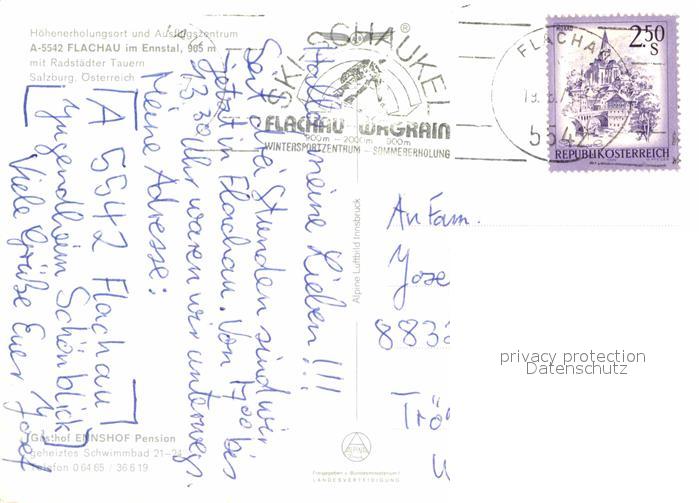 Höhenerholungsort und Ausflugszentrum
A-5542 FLACHAU im Ennstal, 905 m
mit Radstädter Tauern
Salzburg, Österreich
Hallo meine Lieben!!!
Seit drei Stunden sind wir
jetzt in Flachau. Von 7.00 bis
13.30 Uhr waren wir unterwegs.
Meine Adresse:
A 5542 Flachau
Jugendheim Schönblick
Viele Grüße Euer Josef
Gasthof ENNSHOF Pension
geheiztes Schwimmbad 21-24
Telefon 0 64 65 / 36 6 19
SKI-SCHAUKEL®
FLACHAU WAGRAIN
900m - 2000m 900m
WINTERSPORTZENTRUM - SOMMERERHOLUNG
FLACHAU
19. 8.
5542
2.50
S
REPUBLIK ÖSTERREICH
Alpine Luftbild Innsbruck
An Fam.
Jose
883
Trö
ALPINE
Freigegeben v. Bundesministerium f.
LANDESVERTEIDIGUNG
privacy protection
Datenschutz